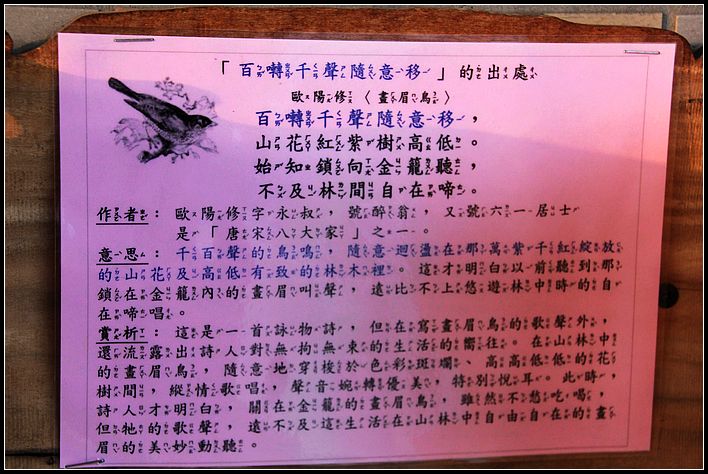 「百囀千聲隨意移」的出處
歐陽修〈畫眉鳥〉
百囀千聲隨意移，
山花紅紫樹高低。
始知鎖向金籠聽，
不及林間自在啼。
作者：歐陽修字永叔，號醉翁，又號六一居士
是「唐宋八大家」之一。
意思：千百聲的鳥鳴，隨意迴盪在那萬紫千紅綻放
的山花及高低有致的林木裡。這才明白以前聽到那
鎖在金籠內的畫眉叫聲，遠比不上悠遊林中時的自
在啼唱。
賞析：這是一首詠物詩，但在寫畫眉鳥的歌聲外，
還流露出詩人對無拘無束的生活的嚮往。在山林中
的畫眉鳥，隨意地穿梭於色彩斑斕、高高低低的花
樹間，縱情歌唱，聲音婉轉優美，特別悅耳。此時，
詩人才明白，關在金籠的畫眉鳥，雖然不愁吃喝，
但牠的歌聲，遠不及這生活在山林中自由自在的畫
眉的美妙動聽。